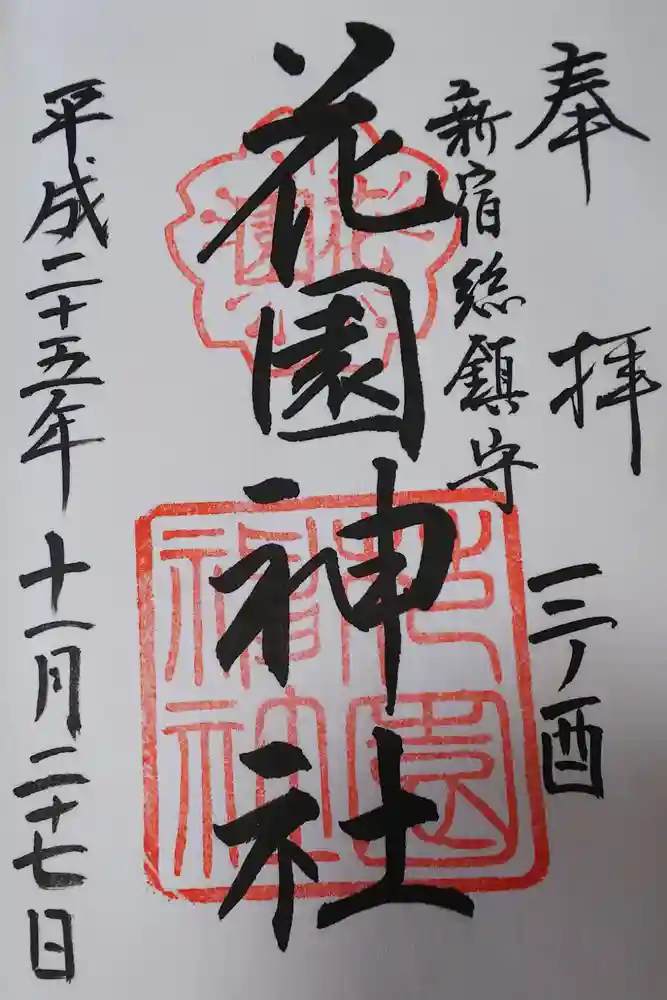 奉拝
三ノ酉
新宿総鎮守
花園神社
花園
花園神社
平成二十五年十一月二十七日